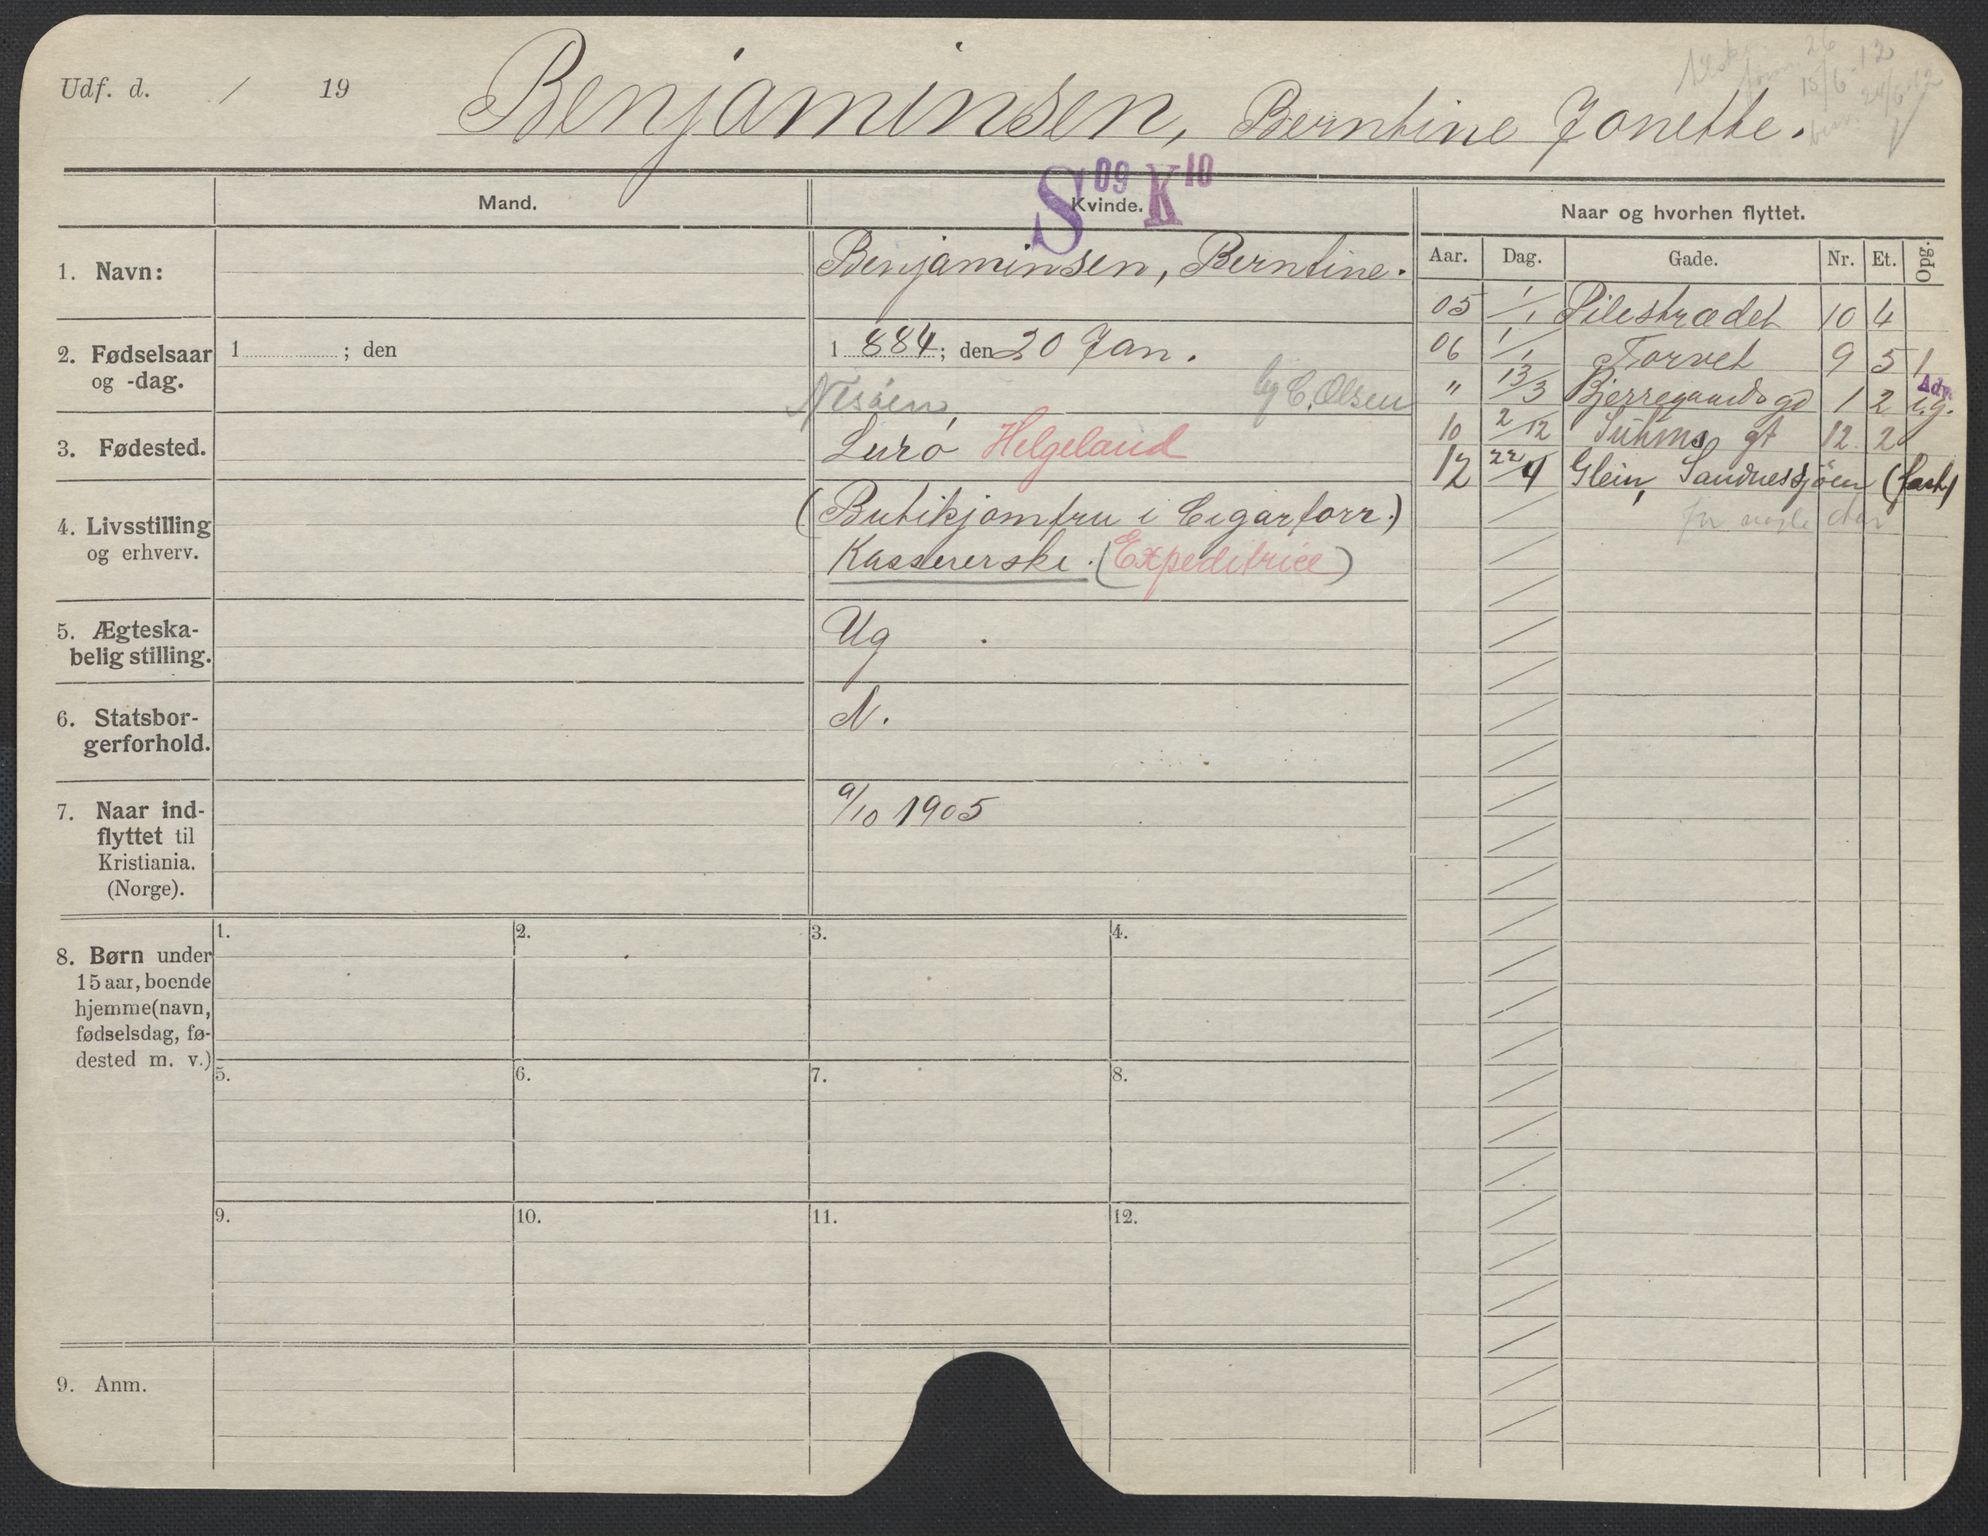 Udf. d. / 19
Benjaminsen, Berntine Jonette.
26
15/6 -12
24/6 12
S 09 K 10
Mand.
Kvinde.
Naar og hvorhen flyttet.
Aar. Dag. Gade. Nr. Et. Opg.
1. Navn:
Benjaminsen, Berntine.
05 1/1 Pilestrædet 10 4
06 1/1 Torvet 9 5 1
" 13/3 Bjerregaards gd 1 2 i.g.
Adr.
10 2/12 Suhms gt 12 2
12 22/4 Glein, Sandnessjøen (fast)
2. Fødselsaar
og -dag.
1 ; den
1 884; den 20 Jan.
Nesøen, C. Olsen
3. Fødested.
Lurø Helgeland
4. Livsstilling
og erhverv.
(Butikjomfru i Cigarforr.)
Kassererske. (Expeditrice)
5. Ægteska-
belig stilling.
Ug
6. Statsbor-
gerforhold.
N.
7. Naar ind-
flyttet til
Kristiania.
(Norge).
9/10 1905
8. Børn under
15 aar, boende
hjemme (navn,
fødselsdag, fø-
dested m. v.)
1. 2. 3. 4.
5. 6. 7. 8.
9. 10. 11. 12.
9. Anm.